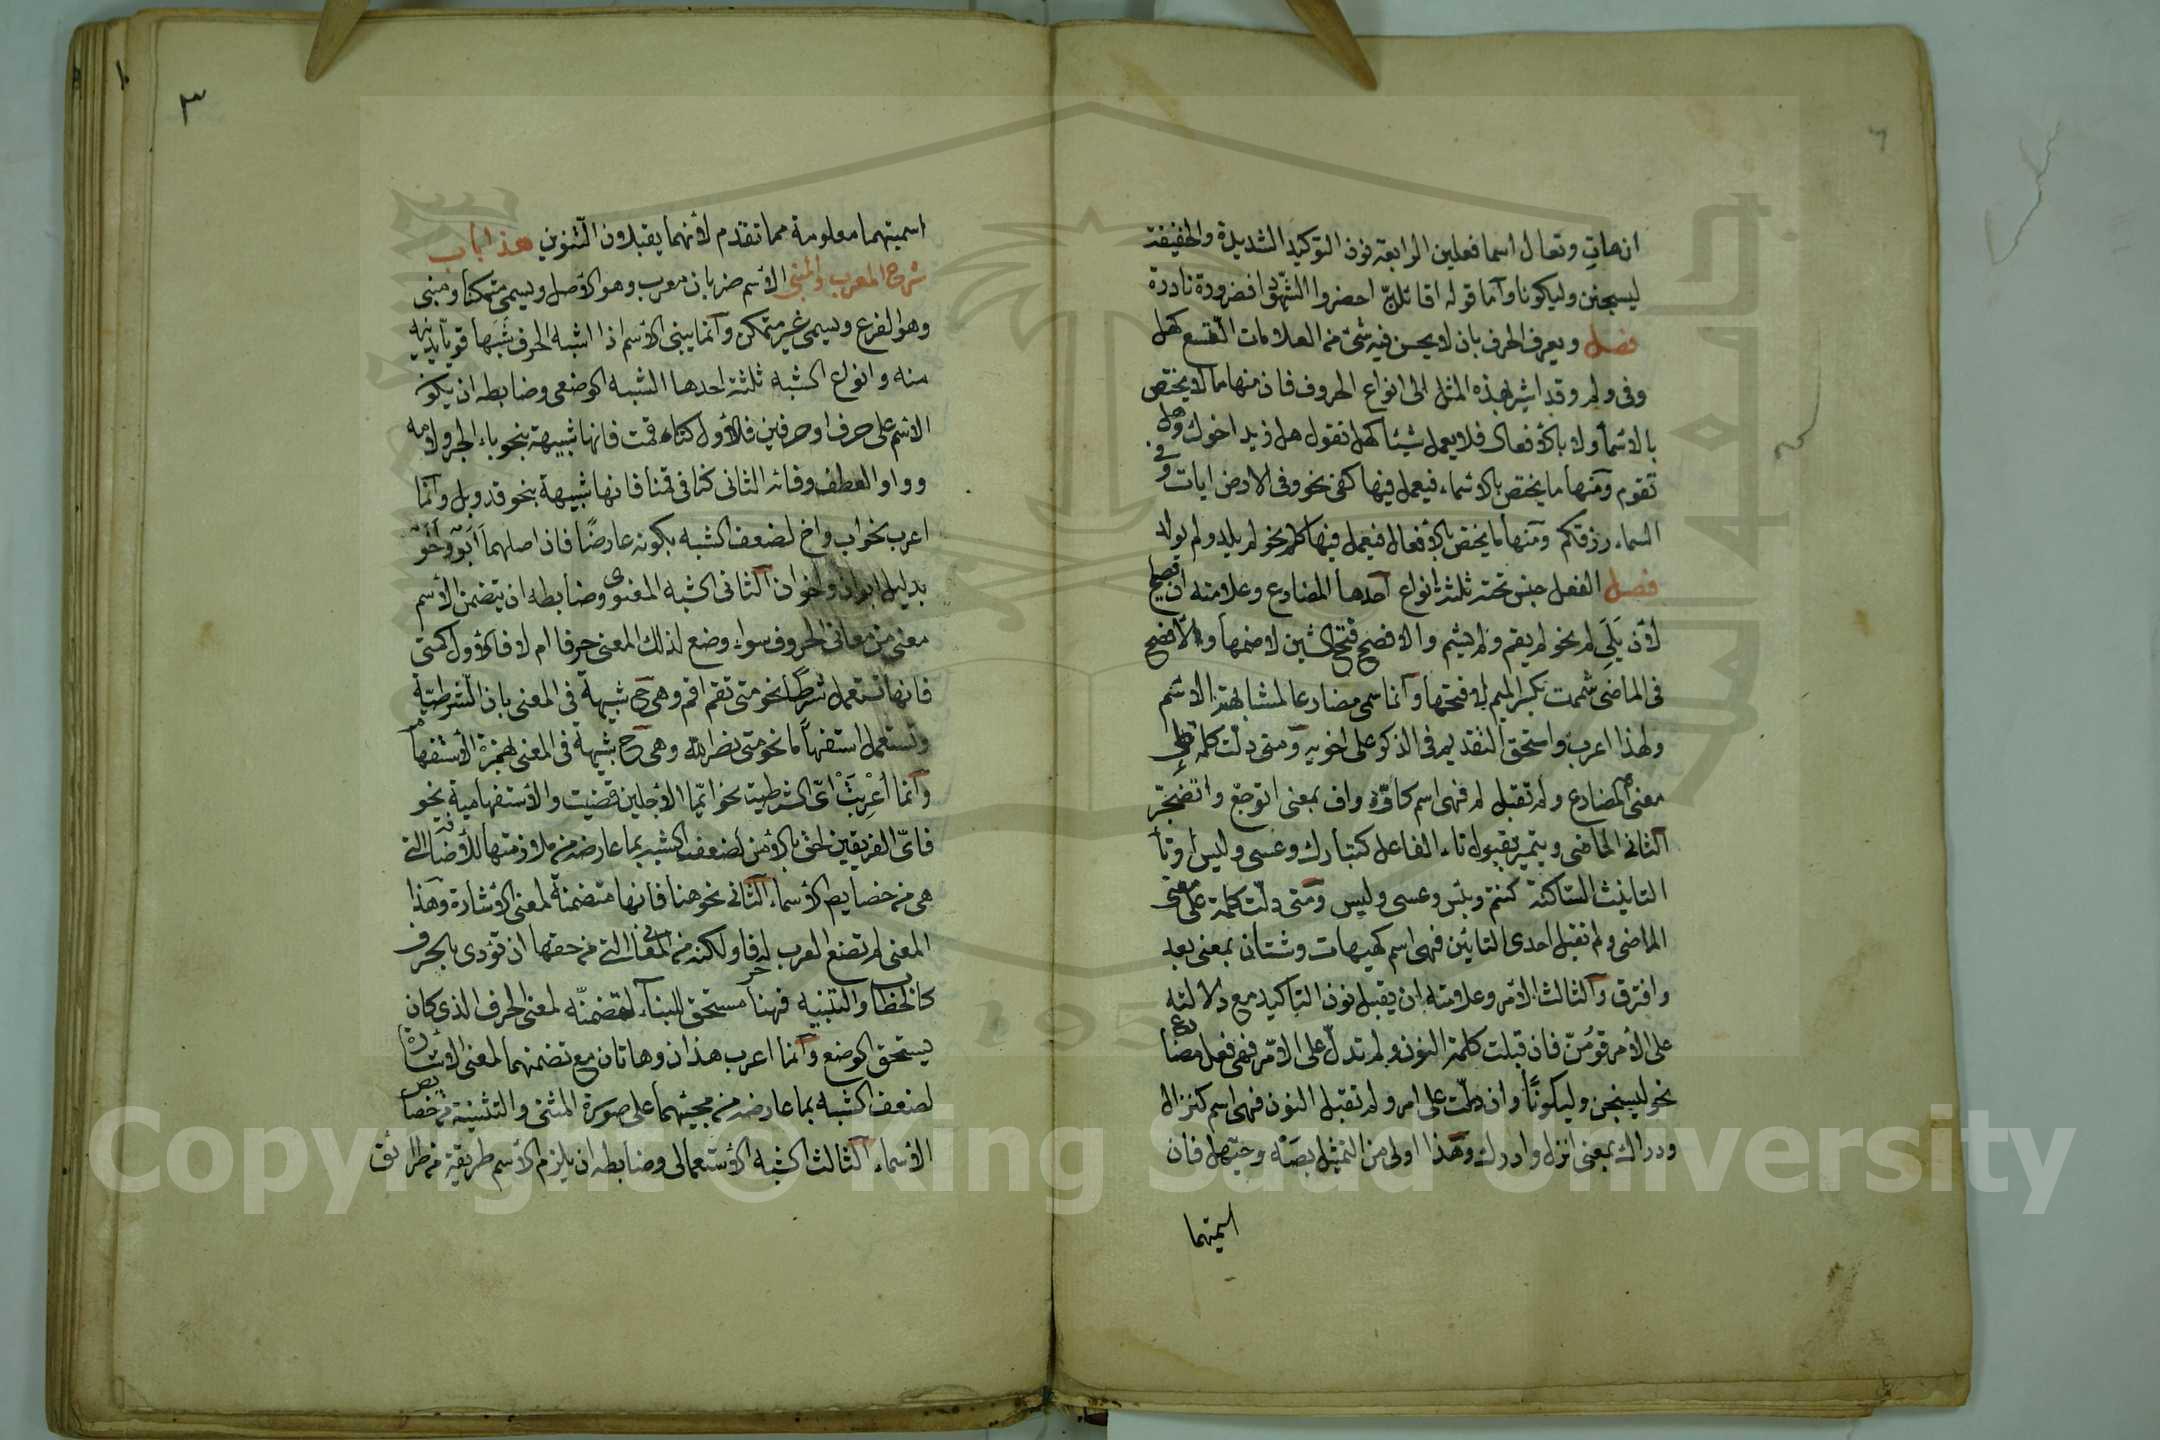 ان هاتِ وتعال اسما فعلين الرابعة نون التوكيد الشديدة والخفيفة
ليسجنن وليكونا وآما قوله اقائلن احضروا الشهودا فضرورة نادرة
فصل ويعرف الحرف بان لا يحسن فيه شئ من العلامات التسع كهل
وفي ولم وقد اشير بهذه المثل الى انواع الحروف فان منها ما لا يختص
بالاسماء ولا بالافعال فلا يعمل شيئا كهل تقول هل زيد اخوك وهل
تقوم ومنها ما يختص بالاسماء فيعمل فيها كفى نحو وفى الارض ايات وفي
السماء رزقكم ومنها ما يختص بالافعال فيعمل فيها كلم نحو لم يلد ولم يولد
فصل الفعل جنس تحته ثلثة انواع احدها المضارع وعلامته ان يصلح
لأن يَلَي لم نحو لم يقم ولم يشم والافصح فتح الشين لا ضمها والافصح
فى الماضى شممت بكسر الميم لا فتحها وآنما سمى مضارعا لمشابهته الاسم
ولهذا اعرب واستحق التقديم فى الذكر على اخويه ومتى دلت كلمة على
معنى المضارع ولم تقبل لم فهى اسم كاوّه واف بمعنى اتوجع واتضجر
الثانى الماضى ويتميز بقبول تاء الفاعل كتبارك وعسى وليس او تاء
التانيث الساكنة كنعم وبئس وعسى وليس ومتى دلّت كلمة على معنى
الماضى ولم تقبل احدى التائين فهى اسم كهيهات وشتان بمعنى بعد
وافترق والثالث الامر وعلامته ان يقبل نون التاكيد مع دلالته
على الأمر قومُنّ فان قبلت كلمة النون ولم تدلّ على الامر فهى فعل مضارع
نحو ليسجنن وليكونًا وان دلّت على امر ولم تقبل النون فهى اسم كنزال
ودراك بمعنى انزل وادرك وهذا اولى من التمثيل بصَهْ وحيّهل فان
اسميتهما
٣
اسميتهما معلومة مما تقدم لأنهما يقبلان التنوين هذا باب
شرح المعرب والمبنى الأسم ضربان معرب وهو الأصل ويسمى متمكنا ومبنى
وهو الفرع ويسمى غير متمكن وآنما يبنى الاسم اذا اشبه الحرف شَبَها قويّا يدنيه
منه وانواع الشبه ثلثة احدها الشبه الوضعى وضابطه ان يكون
الاسم على حرف او حرفين فالأول كتاء قمت فانها شبيهة بنحو باء الجر ولامه
وواو العطف وفائه الثانى كنا فى قمنا فانها شبيهة بنحو قد وبل وآنما
اعرب نحو اب واخ لضعف الشبه بكونه عارضًا فان اصلهما اَبَوٌ واَخَوٌ
بدليل ابوان واخوان الثانى الشبه المعنوى وضابطه ان يتضمن الأسم
معنى من معانى الحروف سواء وضع لذلك المعنى حرفا ام لا فالأول كمتى
فانها تستعمل شرطًا نحو متى تقم اقم وهى ح شبيهة فى المعنى بان الشرطية
وتستعمل استفهاما نحو متى نصر الله وهى ح شبيهة فى المعنى بهمزة الأستفهام
وآنما اُعْرِبَتْ اىّ الشرطية نحو ايّما الاجلين قضيت والأستفهامية نحو
فاىّ الفريقين احق بالأمن لضعف الشبه بما عارضه من ملازمتها للأضافة التى
هى من خصايص الأسماء الثانى نحو هنا فانها متضمنة لمعنى الأشارة وهذا
المعنى لم تضع العرب له حرفا ولكنه من المعانى التى من حقها ان تؤدى بالحرف
كالخطاب والتنبيه فهنا مستحق للبناء لتضمنّه لمعنى الحرف الذى كان
يستحق الوضع وآنما اعرب هذان وهاتان مع تضمنهما لمعنى الاشارة
لضعف الشبه بما عارضه من مجيئهما على صورة المثنى والتثنية من خصايص
الأسماء الثالث الشبه الأستعمالى وضابطه ان يلزم الأسم طريقة من طرائق
Copyright © King Saud University